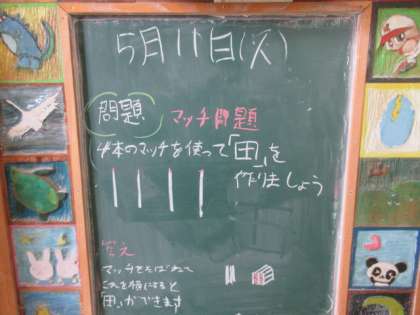 5月11日(火)
問題 マッチ問題
4本のマッチを使って「田」を
作りましょう
答え
マッチをたばねて
これを横にすると
「田」ができます